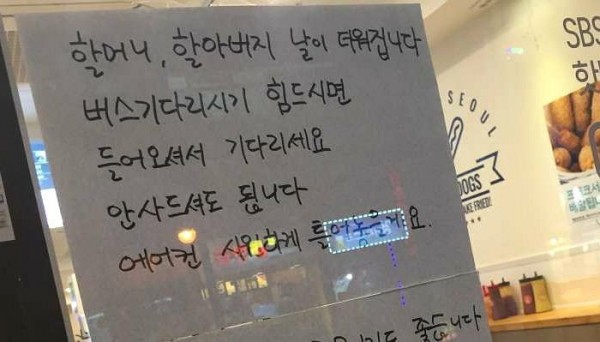 할머니, 할아버지 날이 더워집니다
버스기다리시기 힘드시면
들어오셔서 기다리세요
안사드셔도 됩니다
에어컨 시원하게 틀어놓을게요.
좋습니다
SEOUL
DOGS
SBS